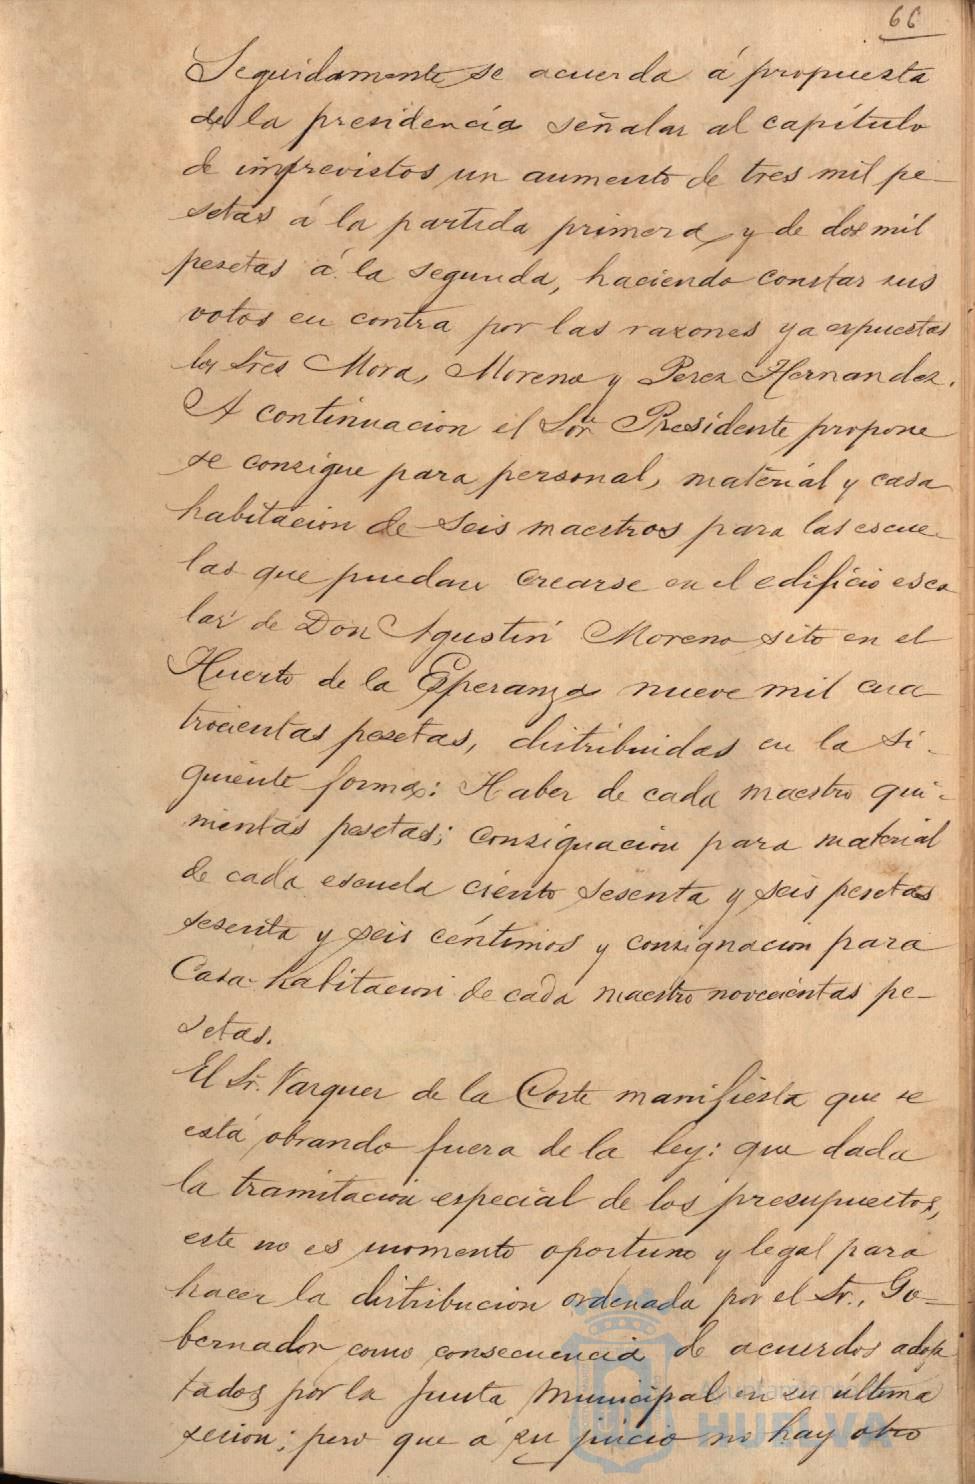 66
Seguidamente se acuerda á propuesta
de la presidencia señalar al capítulo
de imprevistos un aumento de tres mil pe-
setas á la partida primera y de dos mil
pesetas á la segunda, haciendo constar sus
votos en contra por las razones ya expuestas
los Sres Mora, Moreno y Perez Hernandez.
A continuacion el Sor. Presidente propone
se consigne para personal, material y casa
habitacion de seis maestros para las escue-
las que puedan crearse en el edificio esco
lar de Don Agustin Moreno sito en el
Huerto de la Esperanza nueve mil cua-
trocientas pesetas, distribuidas en la si-
guiente forma: Haber de cada maestro qui-
nientas pesetas; consignacion para material
de cada escuela ciento sesenta y seis pesetas
sesenta y seis céntimos y consignacion para
Casa-habitacion de cada maestro novecientas pe-
setas.
El Sr. Vazquez de la Corte manifiesta que se
está obrando fuera de la ley: que dada
la tramitacion especial de los presupuestos,
este no es momento oportuno y legal para
hacer la distribucion ordenada por el Sr. Go-
bernador como consecuencia de acuerdos adop
tados por la Junta Municipal en su última
sesion; pero que a su juicio no hay otro
Ayuntamiento
HUELVA